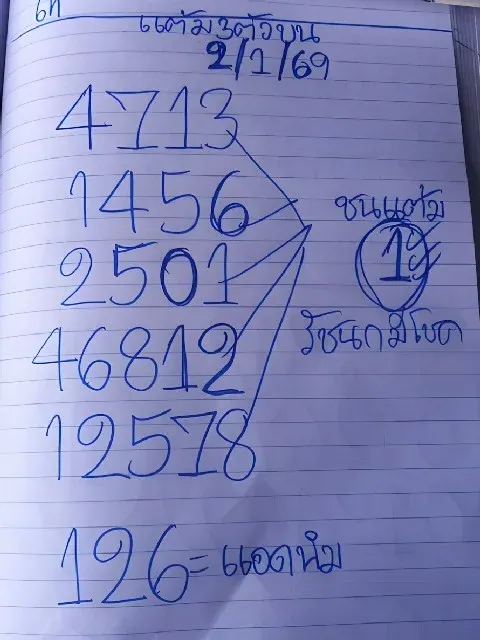 แต้ม3ตัวบน
2/1/69
4713
1456
2501
46812
12578
ชนแต้ม
1
รัชนกมีโชค
126=แอดนำ